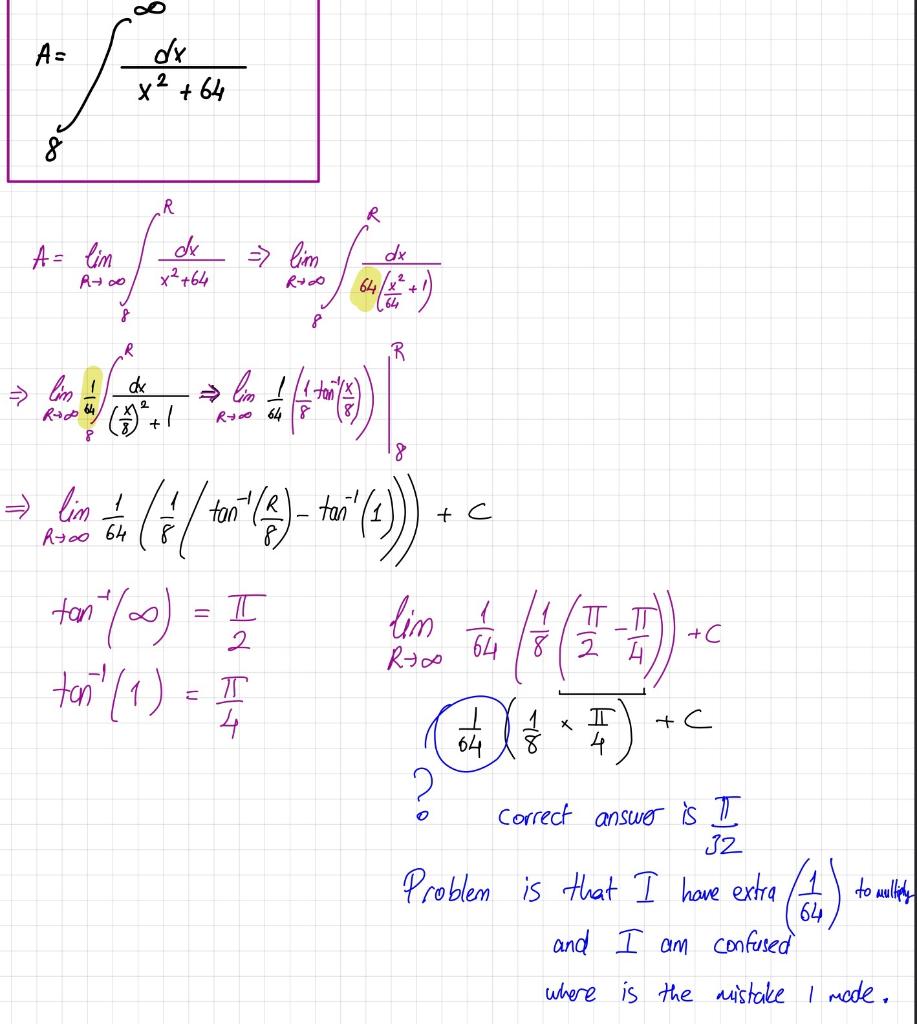 A = ∫₈^∞ dx / (x² + 64)
A = lim R→∞ ∫₈^R dx / (x² + 64) ⇒ lim R→∞ ∫₈^R dx / (64(x²/64 + 1))
⇒ lim R→∞ 1/64 ∫₈^R dx / ((x/8)² + 1) ⇒ lim R→∞ 1/64 (1/8 tan⁻¹(x/8)) |₈^R
⇒ lim R→∞ 1/64 (1/8 (tan⁻¹(R/8) - tan⁻¹(1))) + C
tan⁻¹(∞) = π/2
tan⁻¹(1) = π/4
lim R→∞ 1/64 (1/8 (π/2 - π/4)) + C
1/64 (1/8 × π/4) + C
?
correct answer is π/32
Problem is that I have extra (1/64) to multiply
and I am confused
where is the mistake I made.